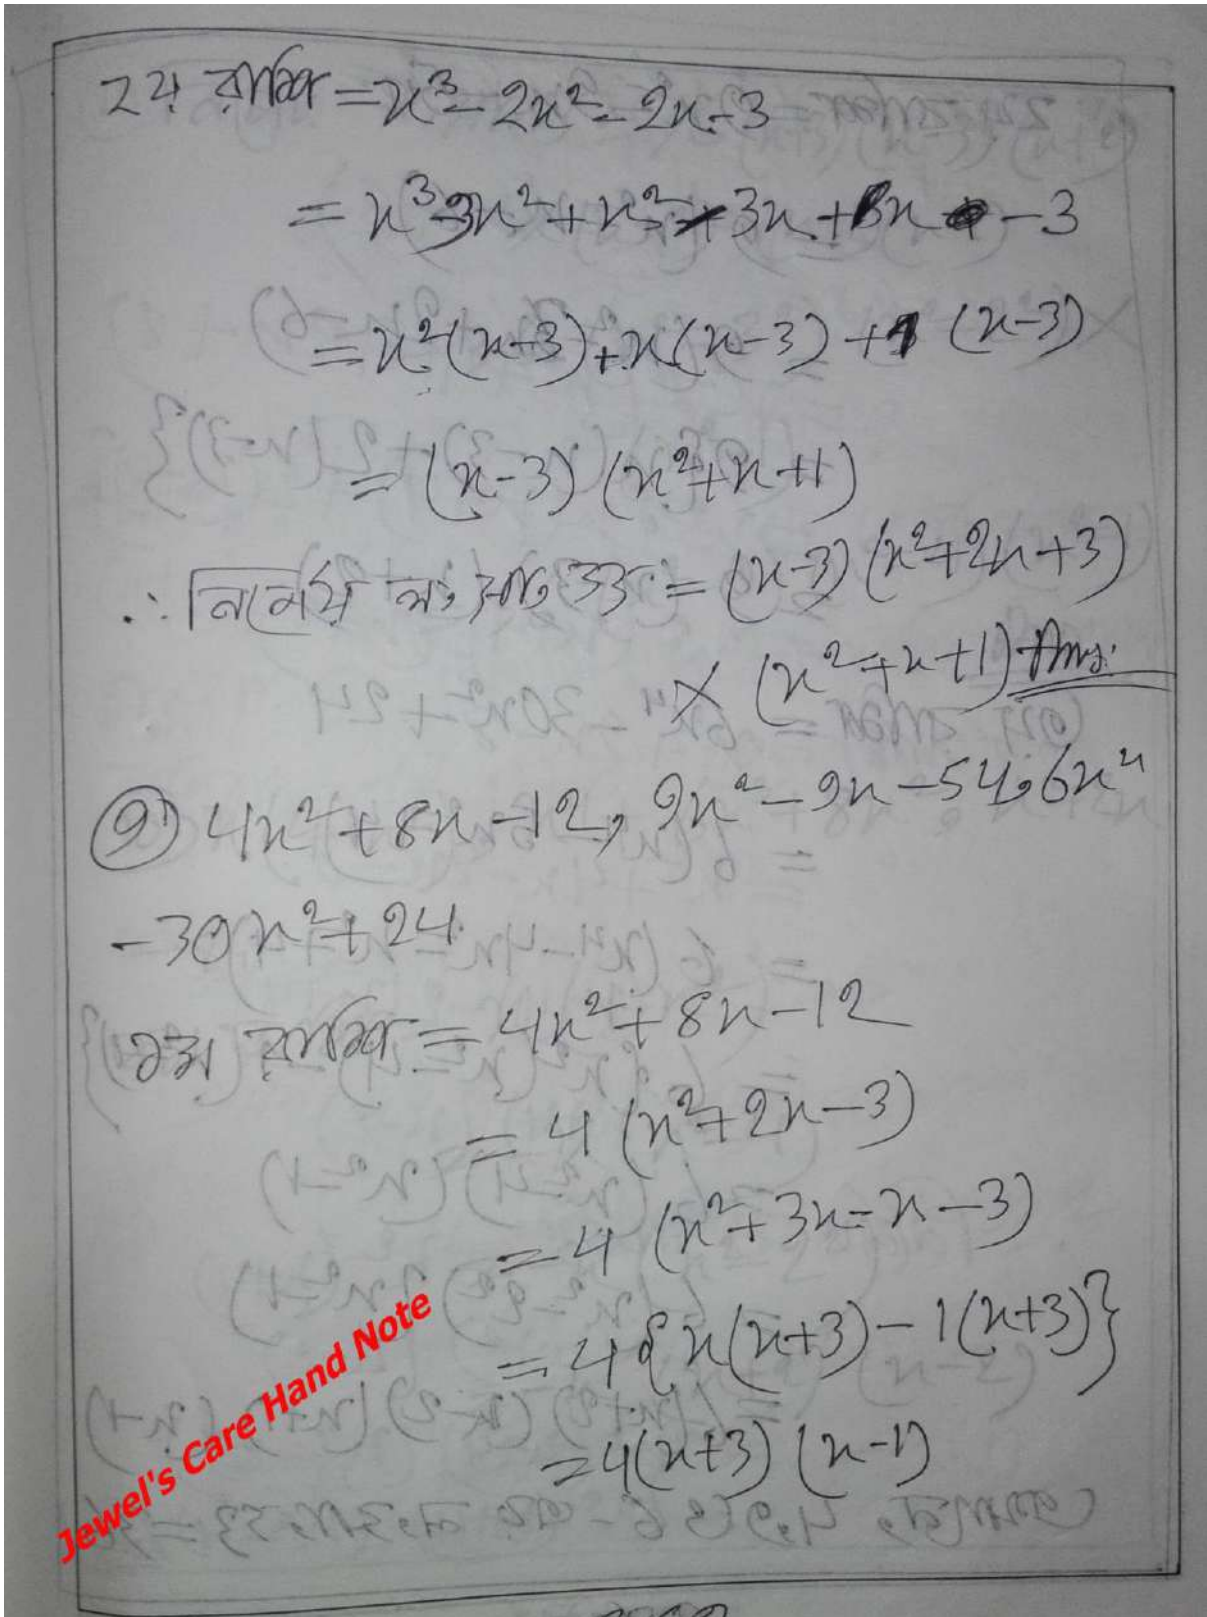 ২য় রাশি = x³ - 2x² - 2x - 3
= x³ - 3x² + x² - 3x + x - 3
= x²(x-3) + x(x-3) + 1 (x-3)
= (x-3) (x²+x+1)
∴ নির্ণেয় ল, সা, গু = (x-3) (x²+2x+3)
× (x²+x+1) Ans:
(9) 4x² + 8x - 12, 9x² - 9x - 54, 6x⁴
- 30x² + 24
১ম রাশি = 4x² + 8x - 12
= 4 (x² + 2x - 3)
= 4 (x² + 3x - x - 3)
= 4 {x(x+3) - 1(x+3)}
= 4(x+3) (x-1)
Jewel's Care Hand Note